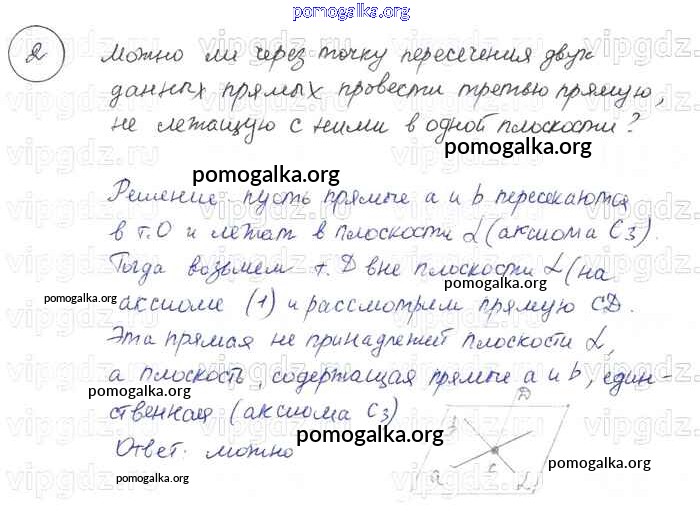 pomogalka.org
2 Можно ли через точку пересечения двух
данных прямых провести третью прямую,
не лежащую с ними в одной плоскости?
pomogalka.org
pomogalka.org
Решение: пусть прямые a и b пересекаются
в т. О и лежат в плоскости α (аксиома С3).
Тогда возьмем т. D вне плоскости α (на
pomogalka.org
pomogalka.org
аксиоме (1) и рассмотрим прямую CD.
Эта прямая не принадлежит плоскости α,
а плоскость, содержащая прямые a и b, един-
pomogalka.org
ственная (аксиома С3)
D
pomogalka.org
Ответ: можно
b
c
a
α
pomogalka.org
vipgdz.ru